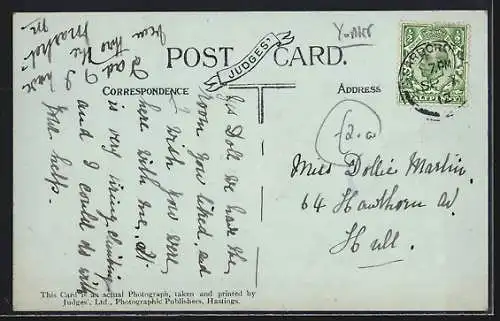 Yorks
POST CARD.
JUDGES'
CORRESPONDENCE
ADDRESS
SCARBORO
7 PM
12
HALFPENNY
£2.00
Yes Doll we have the
room you liked, and
I wish you were
here with me. It
is very tiring climbing
and I could do with
your help.
Dad & I have
the
Miss Dollie Martin.
64 Hawthorn Av
Hull.
This Card is an actual Photograph, taken and printed by
Judges', Ltd., Photographic Publishers, Hastings.